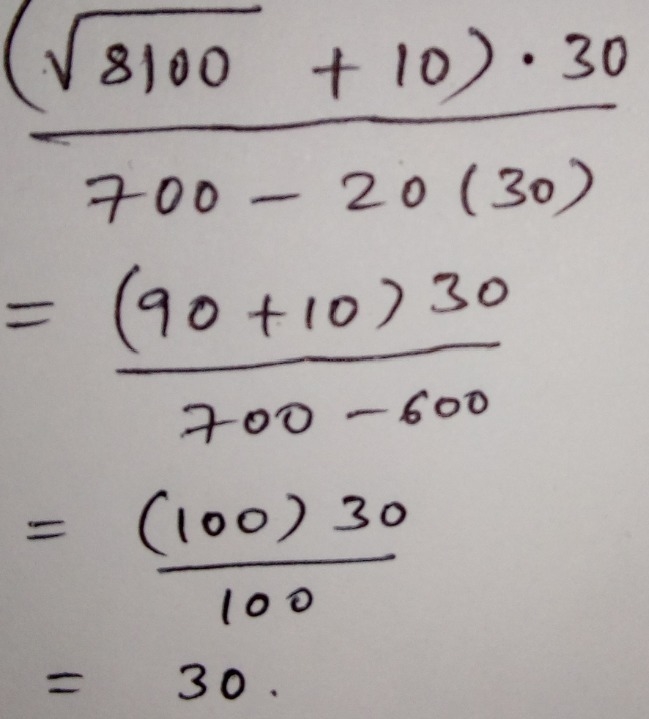 (√8100 + 10) · 30
700 - 20 (30)
= (90 + 10) 30
700 - 600
= (100) 30
100
= 30.